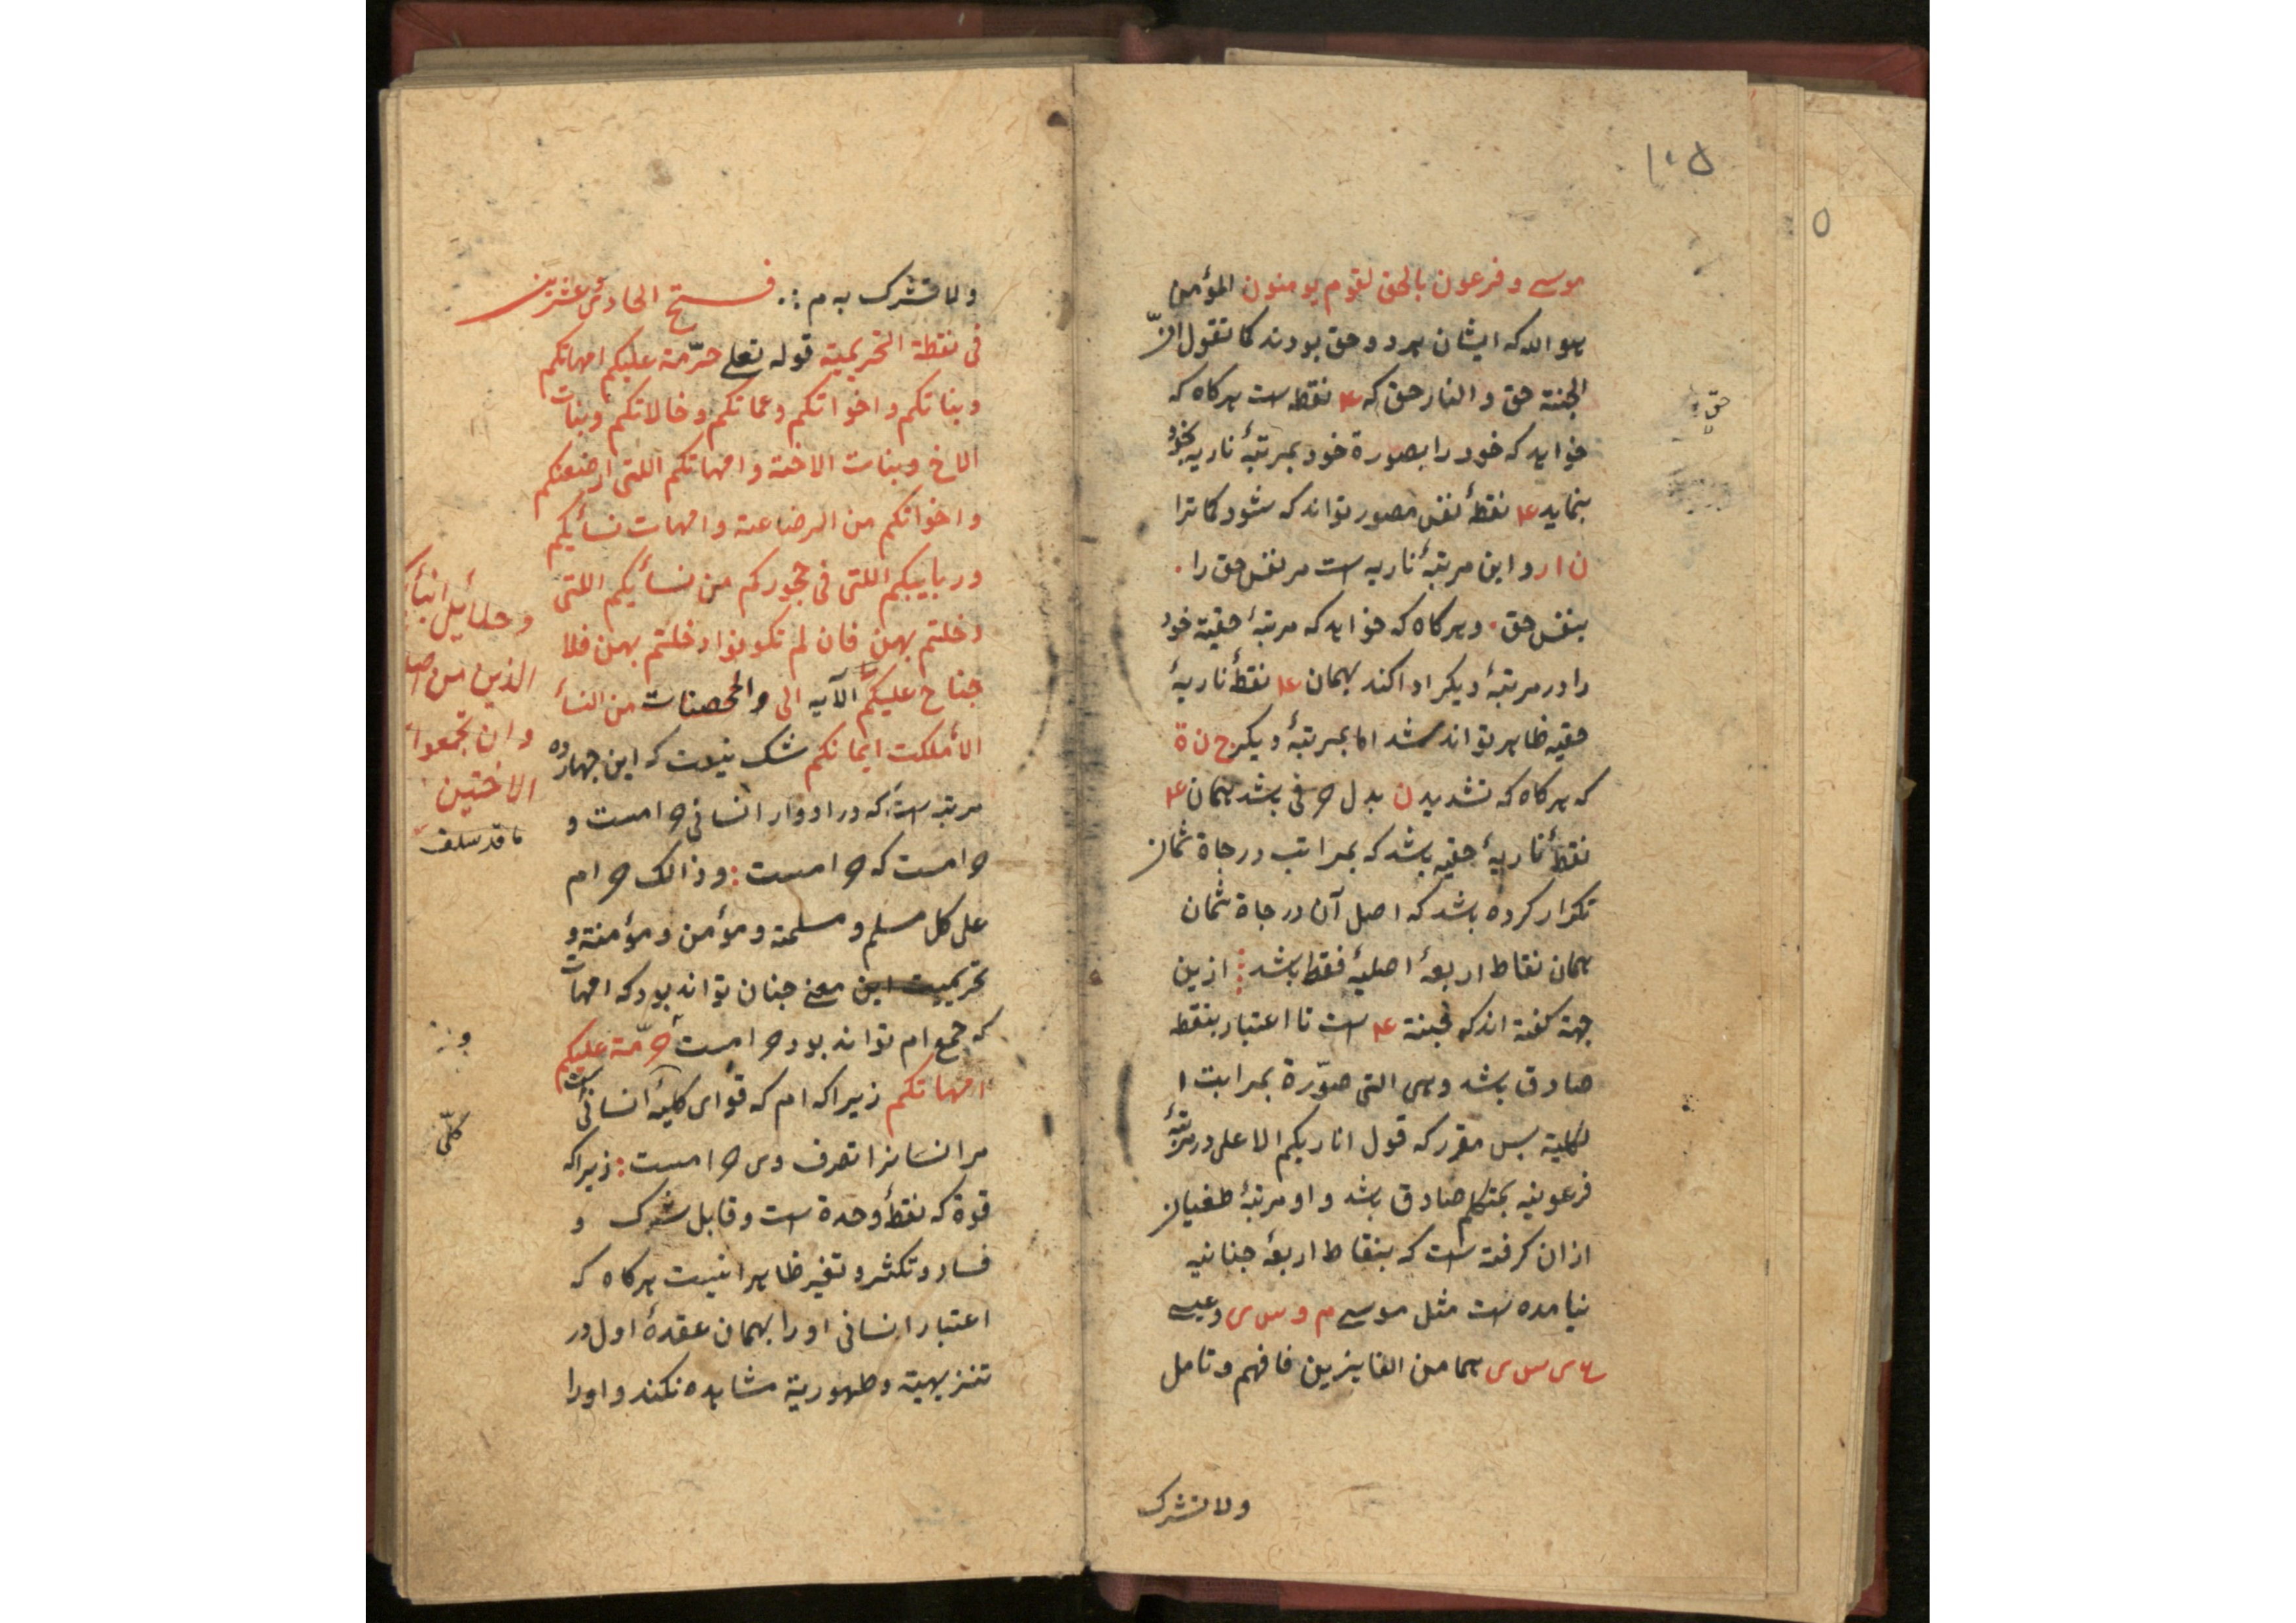 ۱۰۵
۵
موسی و فرعون بالحق لقوم یومنون المؤمن
هو الله که ایشان هر دو حق بودند کما تقول انّ
الجنة حق و النار حق که ۴ نقطه است هرکاه که
حق
خواهد که خود را بصورة خود بمرتبهٔ ناریه بخود
بنماید ۴ نقطهٔ نفس مصور تواند که شود کما ترا
ن ا ر و این مرتبهٔ ناریه است مر نفس حق را ۰
بنفس حق ۰ و هرکاه که خواهد که مرتبهٔ حقیه خود
را در مرتبهٔ دیکر ادا کند بهمان ۴ نقطهٔ ناریهٔ
حقیه ظاهر تواند شد اما بمرتبهٔ دیکر ج ن ة
که هرکاه که تشدید ن بدل حرفی باشد همان ۴
نقطهٔ ناریهٔ حقیه باشد که بمراتب درجاة ثمان
تکرار کرده باشد که اصل آن درجاة ثمان
همان نقاط اربعهٔ اصلیهٔ فقط باشد ازین
جهة کفته اند که جنة ۴ است تا اعتبار بنقطه
صادق باشد وهی التی صوّرة بمراتب ا
لکلیة پس مقرر که قول انا ربکم الاعلی در مرتبهٔ
فرعونیه بمتکلم صادق باشد و او مرتبهٔ طغیان
ازان کرفته است که بنقاط اربعهٔ جنانیه
نیامده است مثل موسی م و س ی و عیسی
ع ی س ی هما من الفایزین فافهم و تامل
ولا تشرک
ولا تشرک به م فـتح الحادی عشرین
فی نقطة التحریمیة قوله تعلی حرّمة علیکم امهاتکم
و بناتکم و اخواتکم و عماتکم و خالاتکم و بنات
الاخ و بنات الاخة و امهاتکم اللتی ارضعنکم
و اخواتکم من الرضاعة و امهات نسأیکم
و ربایبکم اللتی فی حجورکم من نسأیکم اللتی
دخلتم بهن فان لم تکونوا دخلتم بهن فلا
جناح علیکم الآیه الی والمحصنات من النسأ
و حلائل
الذین من
و ان تجمعوا
الاختین
ما قد سلف
الأ ملکت ایمانکم شک نیست که این چهارده
مرتبه است که در ادوار انسانی حرامست و
حرامست که حرامست : و ذالک حرام
علی کل مسلم و مسلمة و مؤمن و مؤمنة و
تحریمیت این معنی چنان تواند بود که امهات
که جمع ام تواند بود حرامست حرّمة علیکم
امهاتکم زیرا که ام که قوای کلیهٔ انسانی است
کلّی
مر انسانرا تصرف وی حرامست : زیرا که
قوة که نقطهٔ وحدة است و قابل شرک و
فساد و تکثر و تغیر ظاهرا نیست هرکاه که
اعتبار انسانی او را بهمان عقدهٔ اول در
تنزیهیة و طهوریة مشاهده نکند و او را